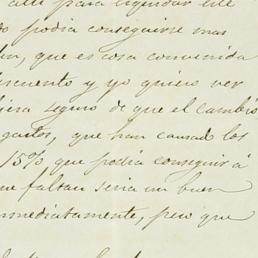 alli para liquidar este
do podia conseguirse mas
que es cosa convenida
scuento y yo quiero ver
iera seguro de que el cambio
gastos, que han causado los
15% que podia conseguir á
ue faltan seria un buen
nmediatamente, pero que